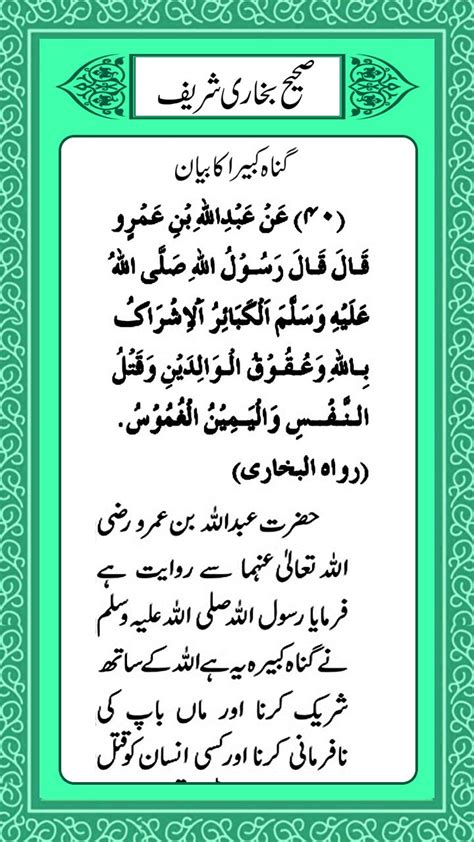 صحیح بخاری شریف
گناہ کبیرا کا بیان
(۴۰) عَنْ عَبْدِاللهِ بْنِ عَمْرٍو
قَالَ قَالَ رَسُوْلُ اللهِ صَلَّى اللهُ
عَلَيْهِ وَسَلَّمَ اَلْكَبَائِرُ اَلْاِشْرَاكُ
بِاللهِ وَعُقُوْقُ الْوَالِدَيْنِ وَقَتْلُ
النَّفْسِ وَالْيَمِيْنُ الْغُمُوْسُ.
(رواه البخاری)
حضرت عبداللہ بن عمرو رضی
اللہ تعالیٰ عنہما سے روایت ہے
فرمایا رسول اللہ صلی اللہ علیہ وسلم
نے گناہ کبیرہ یہ ہے اللہ کے ساتھ
شریک کرنا اور ماں باپ کی
نافرمانی کرنا اور کسی انسان کو قتل